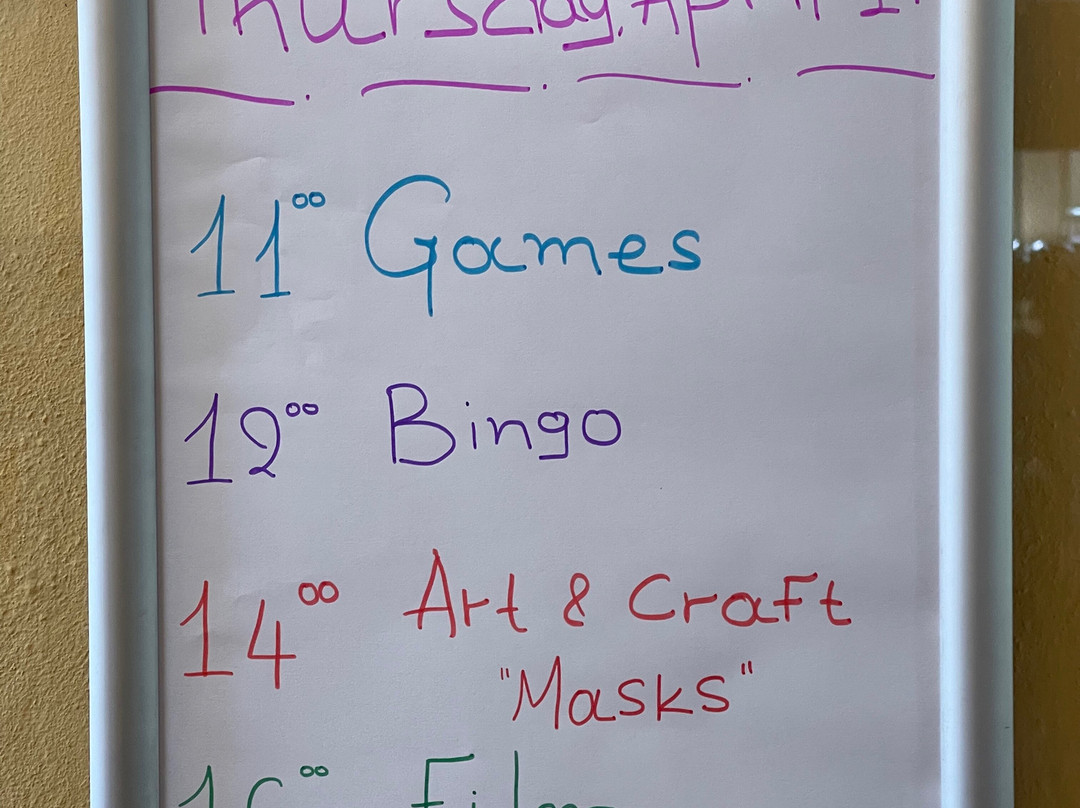 Thursday, April
11⁰⁰ Games
12⁰⁰ Bingo
14⁰⁰ Art & Craft
"Masks"
16⁰⁰